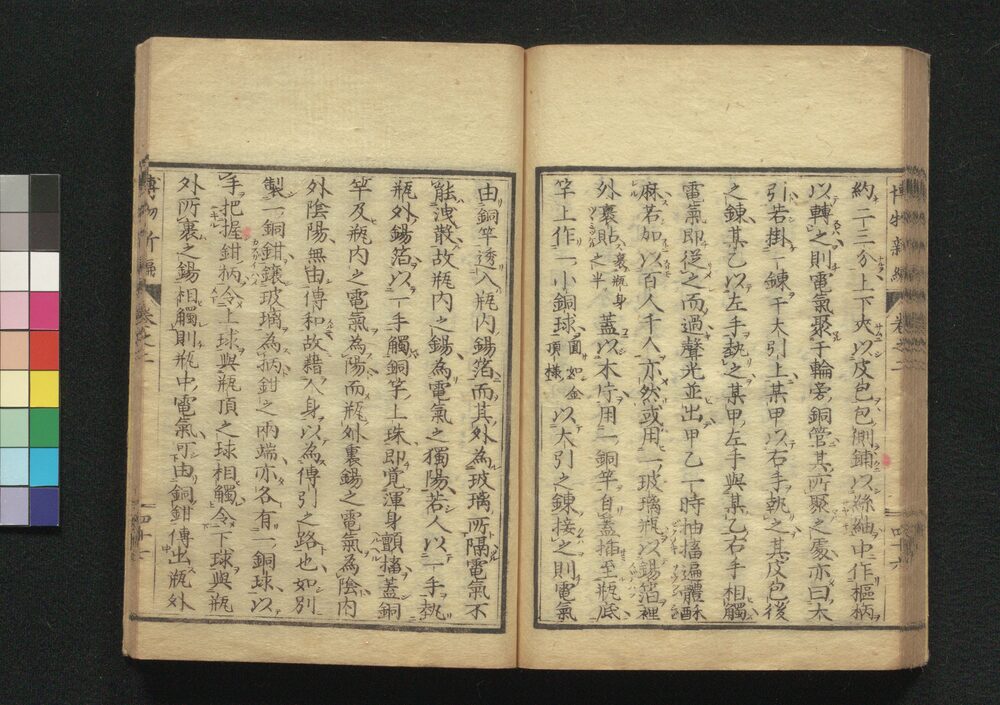 博物新編 卷之二 四十六
約一二三分上下夾以皮包包側鋪以絲紬中作樞柄
以轉之則電氣聚于輪旁銅管其所聚之處亦曰大
引若掛一鍊于大引上某甲以右手執之其皮包後
之鍊某乙以左手執之某甲左手與某乙右手相觸
電氣即從之而過聲光並出甲乙一時抽搐遍體酥
麻若加以百人千人亦然或用一玻璃瓶以錫箔裡
外裹貼裹瓶身之半蓋以木片用一銅竿自蓋插至瓶底
竿上作一小銅球圓如金頂樣以大引之鍊接之則電氣
由銅竿透入瓶内錫箔而其外為玻璃所隔電氣不
能洩散故瓶内之錫為電氣之獨陽若人以一手執
瓶外錫箔以一手觸銅竿上珠即覺渾身顫搐蓋銅
竿及瓶内之電氣為陽而瓶外裏錫之電氣為陰内
外陰陽無由傳和故藉人身以為傳引之路也如別
製一銅鉗鑲玻璃為柄鉗之兩端亦各有一銅球以
手把握鉗柄令上球與瓶頂之球相觸令下球與瓶
外所裹之錫相觸則瓶中電氣可由銅鉗傳出瓶外
博物新編 卷之二